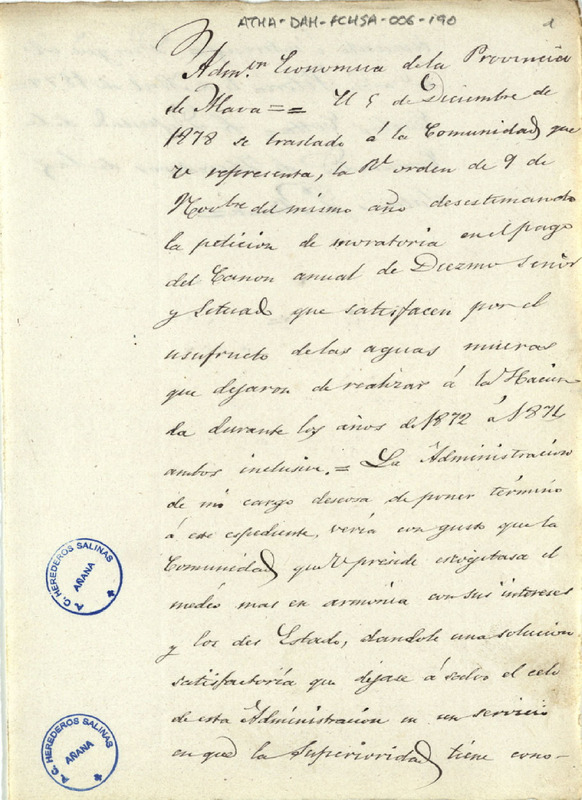 ATHA-DAH-FCHSA-006-190
1
Adm.on Economica de la Provincia
de Alava == El 5 de Diciembre de
1878 se traslado á la Comunidad que
V representa, la Rl orden de 9 de
Novbre del mismo año desestimando
la peticion de moratoria en el pago
del Canon anual de Diezmo señor
y Situad que satisfacen por el
usufructo de las aguas mueras
que dejaron de realizar á la Hacien
da durante los años de 1872 á 1874
ambos inclusive. = La Administracion
de mi cargo deseosa de poner término
á este espediente, veria con gusto que la
Comunidad que V preside escojitase el
medio mas en armonia con sus intereses
y los del Estado, dandole una solucion
satisfactoria que dejase á salvo el celo
de esta Administracion en un servicio
en que la Superioridad tiene cono-
A. C. HEREDEROS SALINAS
AÑANA
A. C. HEREDEROS SALINAS
AÑANA